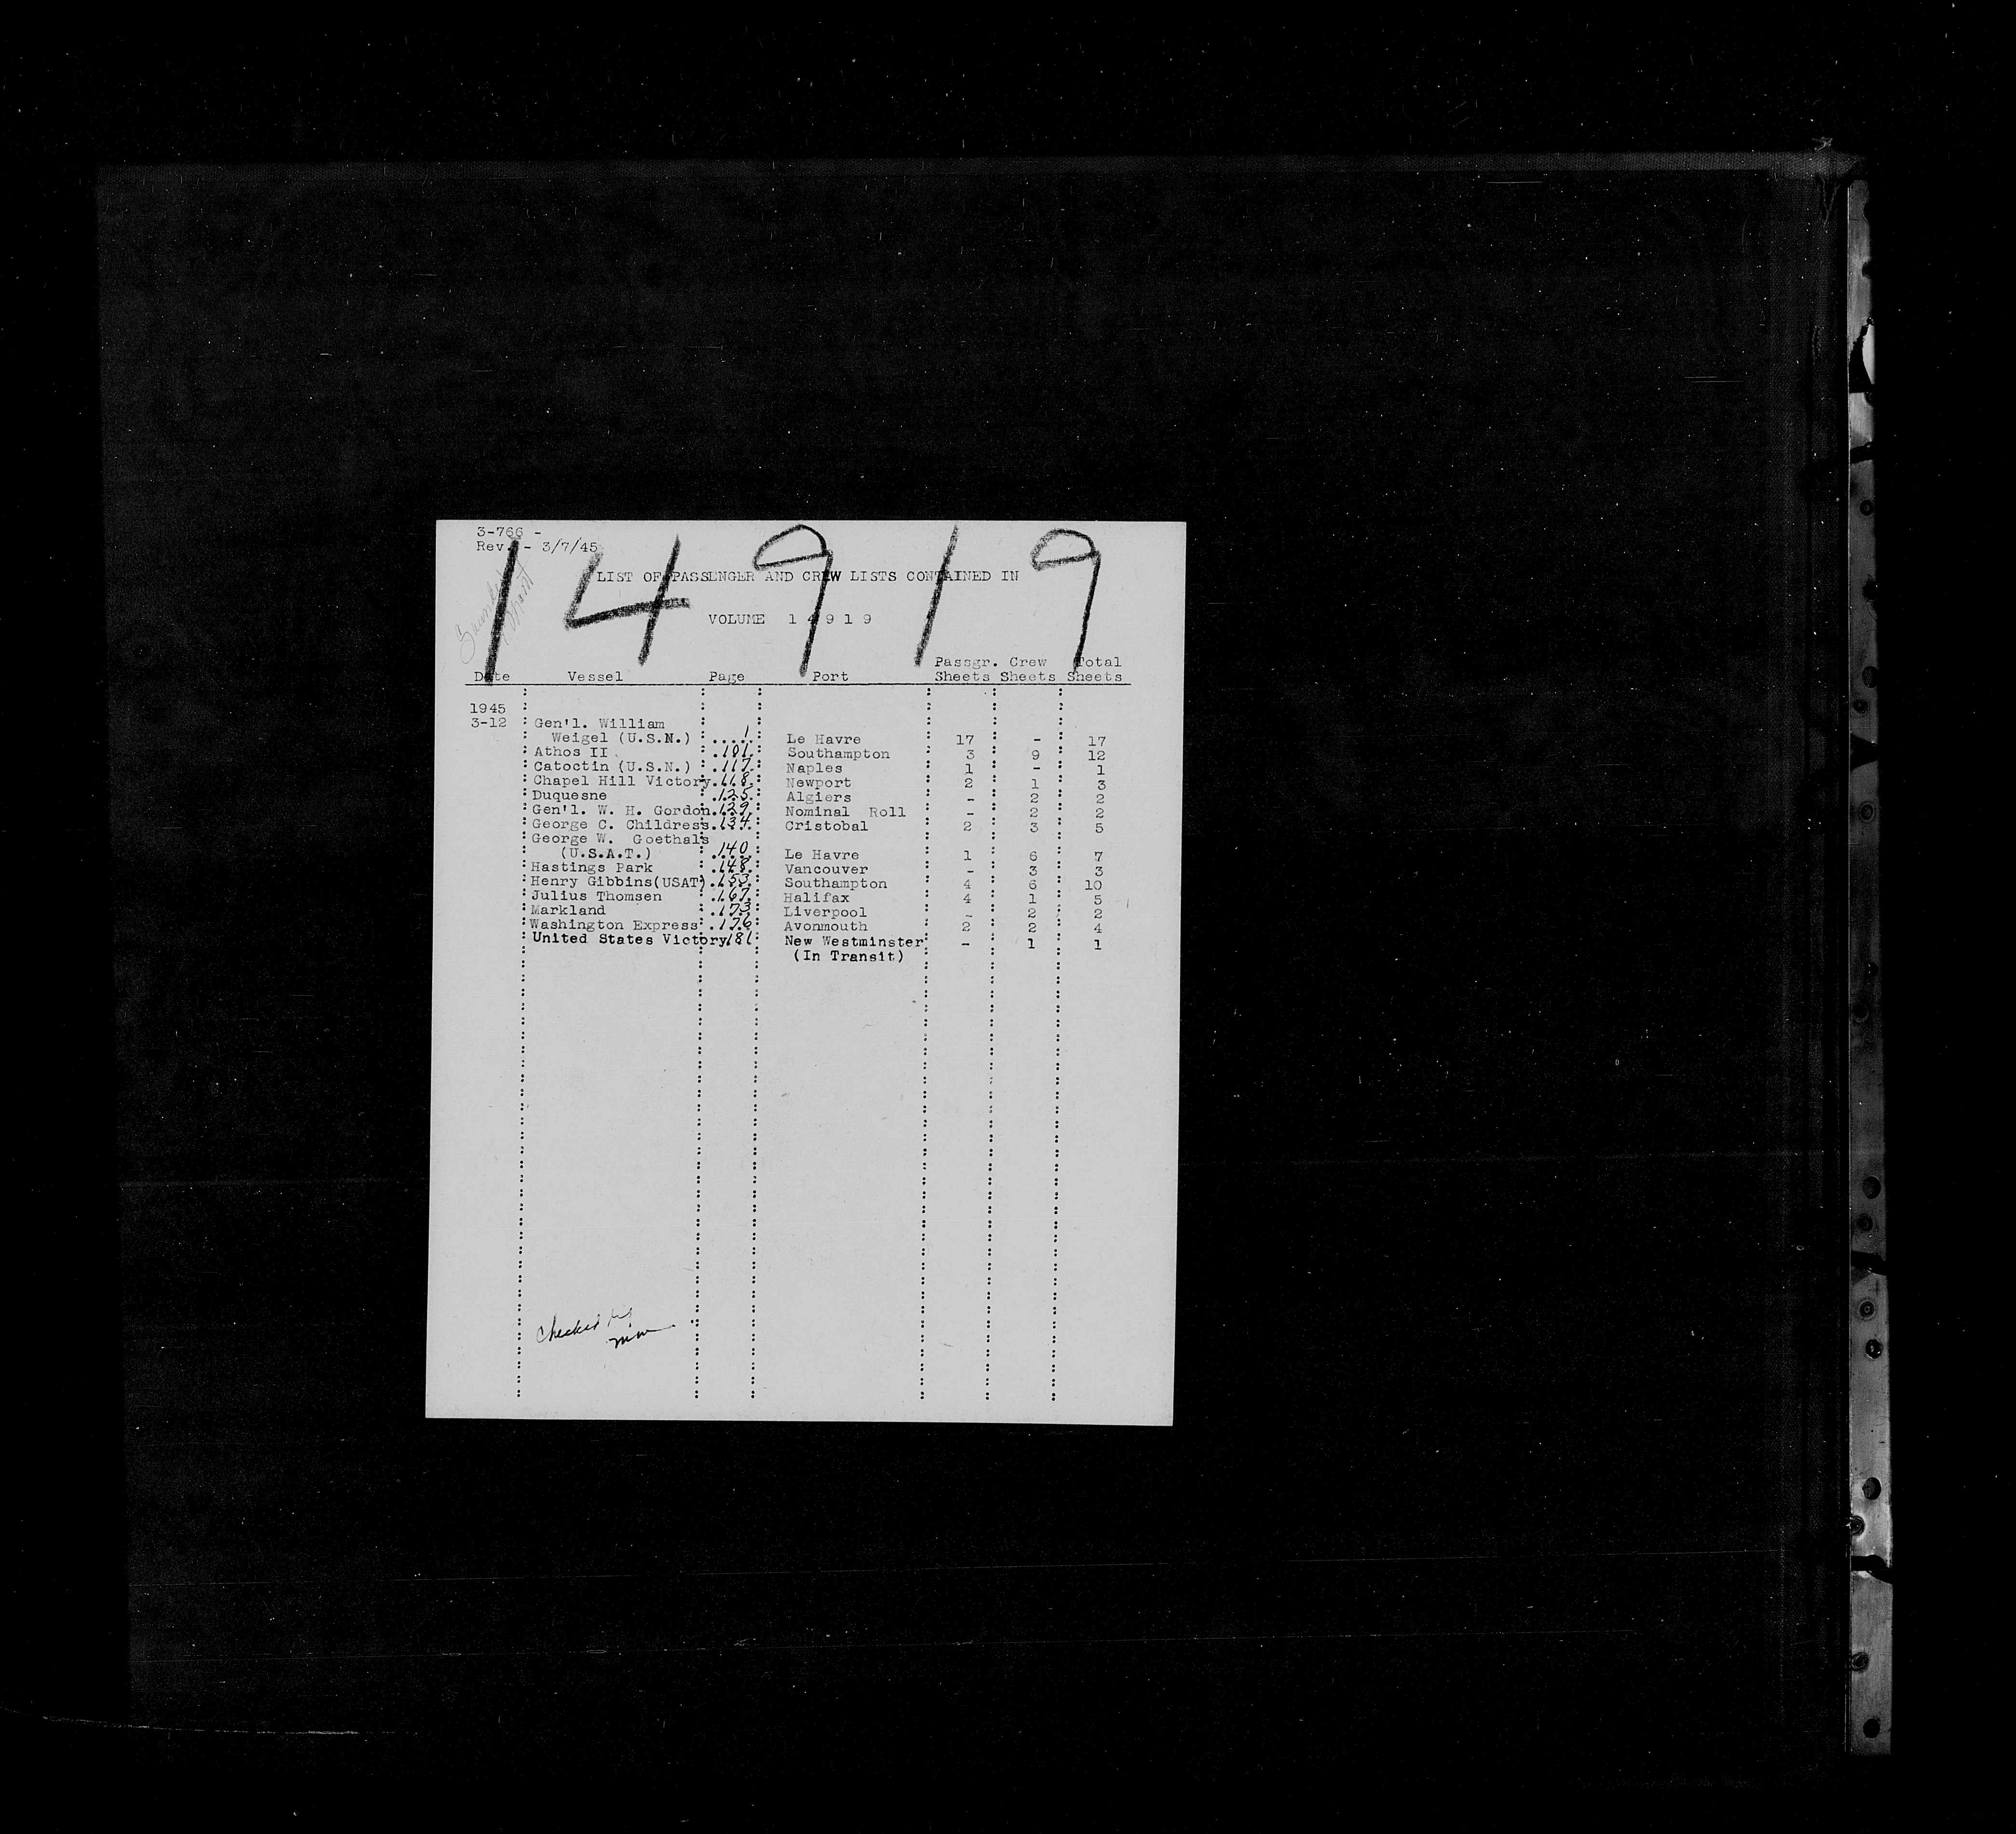 3-766 -
Rev. - 3/7/45
14919
LIST OF PASSENGER AND CREW LISTS CONTAINED IN
VOLUME 1 4 9 1 9
Passgr. Crew Total
Date Vessel Page Port Sheets Sheets Sheets
1945
3-12 Gen'l. William
Weigel (U.S.N.) ....1 Le Havre 17 - 17
Athos II .101. Southampton 3 9 12
Catoctin (U.S.N.) .117. Naples 1 - 1
Chapel Hill Victory.118. Newport 2 1 3
Duquesne .125. Algiers - 2 2
Gen'l. W. H. Gordon.129. Nominal Roll - 2 2
George C. Childress.134. Cristobal 2 3 5
George W. Goethals
(U.S.A.T.) .140. Le Havre 1 6 7
Hastings Park .148. Vancouver - 3 3
Henry Gibbins(USAT).153. Southampton 4 6 10
Julius Thomsen .167. Halifax 4 1 5
Markland .173. Liverpool - 2 2
Washington Express .176. Avonmouth 2 2 4
United States Victory181 New Westminster - 1 1
(In Transit)
Checked by
mw